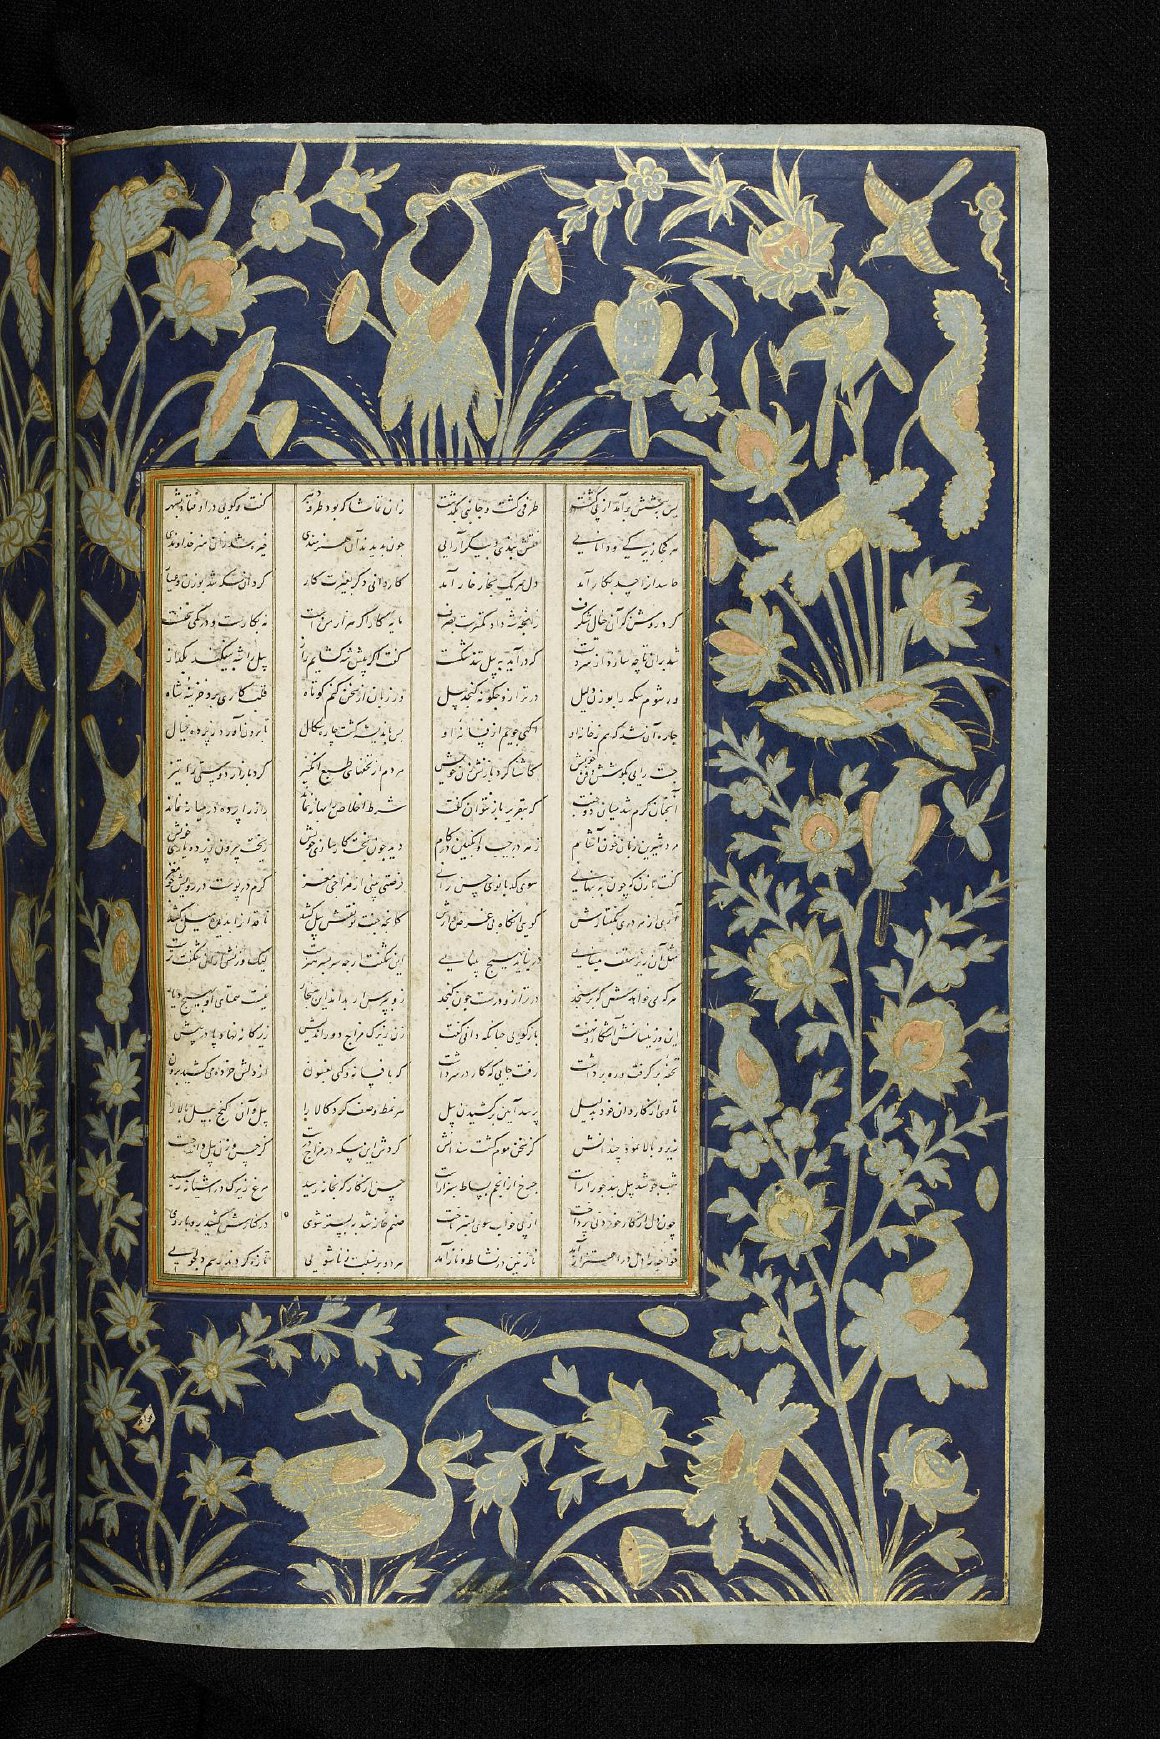 پس بجنبش برآمد از پی گشت طرفی گشت و جانبی بگذشت زان تماشا که بود طرفه دهر گفت و گویی در اوفتاد بشهر
هر کجا زیرکی و دانایی نقش بندی و پیکر آرایی چون بدیدند آن هنرمندی خیره شد زان هنر خداوندی
کاردانی دگر بغیرت کار
گر درآید به پیل گفت اگر پیش شه گشایم راز پیل را شه بیفکند بگداز
ور شوم سنگ را بوزن دلیل در ترازو چگونه گنجد پیل ور زبان از سخن کنم کوتاه کاری برد خزینه شاه
چاره آن شد که هم ز خانه او آگهی جویم از فسانه او پس باندیشه گشت چاره سگال تا برون آورد ز پرده خیال
جست رایی بکوشش و فن خویش کاشنا کرد با زنش زن خویش مردم از تحفهای طبع انگیز کرد بازار دوستی را تیز
آنچنان گرم شد میان دو جفت که بتقریر باز نتوان گفت شرط اخلاص را بهانه نماند راز را پرده در میانه نماند
مرد شیرین زبان خون آشام زهر در جیب و انگبین در کام دید چون پخت خویش ریخت بیرون ز پرده بازی خویش
گفت با زن که چون به پنهانی سوی کدبانوی حسن رانی فرصتی بینی از مزاجی نغز گرم در پوست در روش چو مغز
آری از هر دری بگفتارش گویی آنگاه بی غرض وارش کانچه جفت تو نقش پیل کشد
مثل آن زیر سقف مینایی در نیاید بهیچ بینایی این شگفت ار چه سربسر هنرست لیک وزنش ازان شگفت ترست
هر که خواهد کش گهر سنجد در ترازو درست چون گنجد زو بپرس ار بداند این هنجار نیست همتای او بهیچ دیار
این وزینسانش آشکار و نهفت بازگویی چنانکه دانی گفت زن زیرک مزاج دوراندیش زیرکانه نهاد پا در پیش
تحفه برگرفت و ره برداشت رفت جایی که کار در سر داشت که بافسانه و گهی بفسون از دلش خرده می کشید برون
تا وی از کاردان خود بدلیل پرسد آیین برکشیدن پیل هر نمط وصف کرد کالا را پله آن گنج پیل بالا را
زیر و بالا نمود چندانش کز سخن موم گشت سندانش گردش این سکه در مزاج درست کز حسن وزن پیل داند جست
شب چو شد پیل بند خور آراست چرخ از انجم بساط حسن از کارگه بخانه رسید مرغ زیرک در آشیانه رسید
چون دل از کار خوردنی پرداخت از پی خواب سوی بستر تاخت صنم خانه شد به بستر شوی در کنارش کشید روی بروی
خواجه را دل در اهتزاز آمد نازنین در نشاط و ناز آمد مرد و بر نسبت زناشویی تازه کردند رسم دلجویی